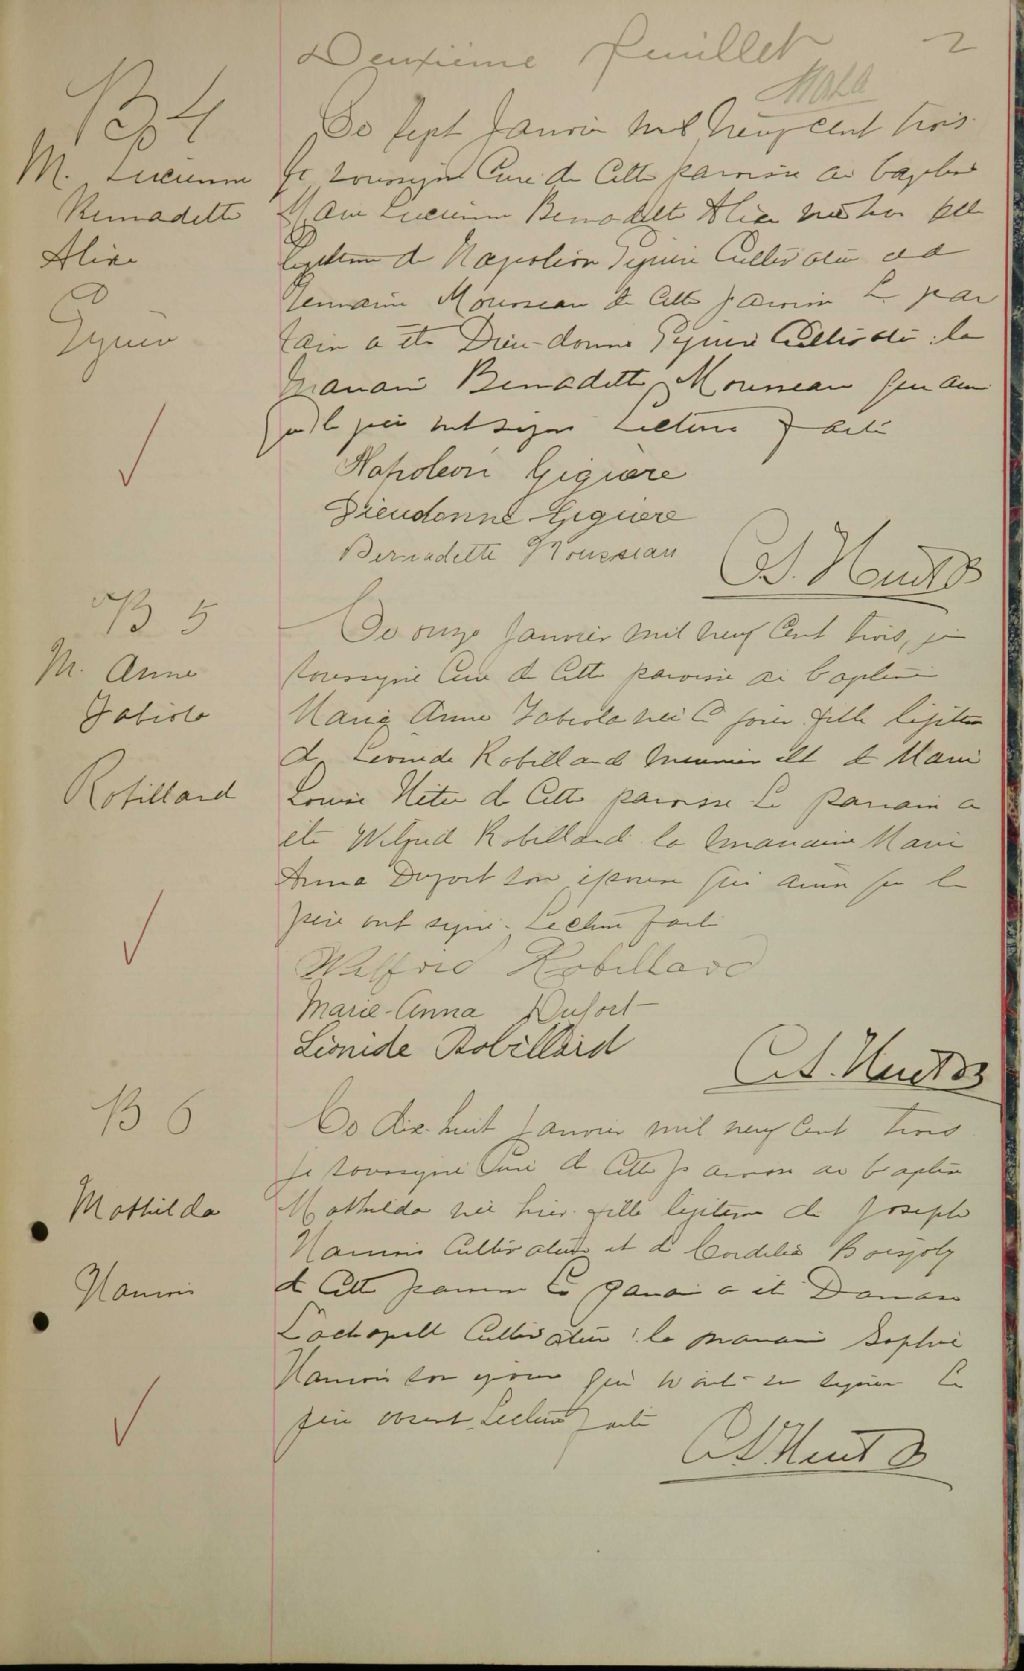 Deuxième feuillet 2
B 4
M. Lucienne
Bernadette
Alice
Giguère
Ce sept Janvier mil neuf cent trois
Je soussigné Curé de Cette paroisse ai baptisé
Marie Lucienne Bernadette Alice née hier fille
légitime de Napoléon Giguère Cultivateur et de
Germaine Mousseau de Cette paroisse Le par
rain a été Dieu-donné Giguère Cultivateur : la
marraine Bernadette Mousseau qui ainsi
que le père ont signé Lecture faite
Napoleon Gigiere
Dieudonné Giguère
Bernadette Mousseau
C.S. Huet
B 5
M. Anne
Fabiola
Robillard
Ce onze Janvier mil neuf Cent trois, je
soussigné Curé de Cette paroisse ai baptisé
Marie Anne Fabiola née Ce jour fille légitime
de Léonide Robillard meunier et de Marie
Louise de Cette paroisse Le parrain a
été Wilfrid Robillard la marraine Marie
Anna Dufort son épouse qui ainsi que le
père ont signé. Lecture faite
Wilfrid Robillard
Marie-Anna Dufort
Léonide Robillard
C.S. Huet
B 6
Mathilda
Ce dix-huit Janvier mil neuf Cent trois
je soussigné Curé de Cette paroisse ai baptisé
Mathilda née hier fille légitime de Joseph
Cultivateur et de Cordélia Boisjoly
de Cette paroisse Le parrain a été Damase
Lachapelle Cultivateur : la marraine Sophie
son épouse qui n'ont su signer Le
père absent. Lecture faite
C.S. Huet